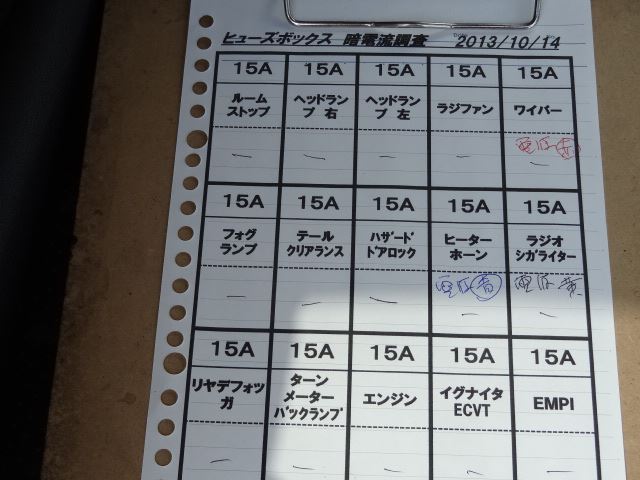 ヒューズボックス 暗電流調査 2013/10/14
15A 15A 15A 15A 15A
ルーム
ストップ
ヘッドラン
プ 右
ヘッドラン
プ 左
ラジファン
ワイパー
15A 15A 15A 15A 15A
フォグ
ランプ
テール
クリアランス
ハザード
ドアロック
ヒーター
ホーン
ラジオ
シガライター
15A 15A 15A 15A 15A
リヤデフォッ
ガ
ターン
メーター
バックランプ
エンジン
イグナイタ
ECVT
EMPI